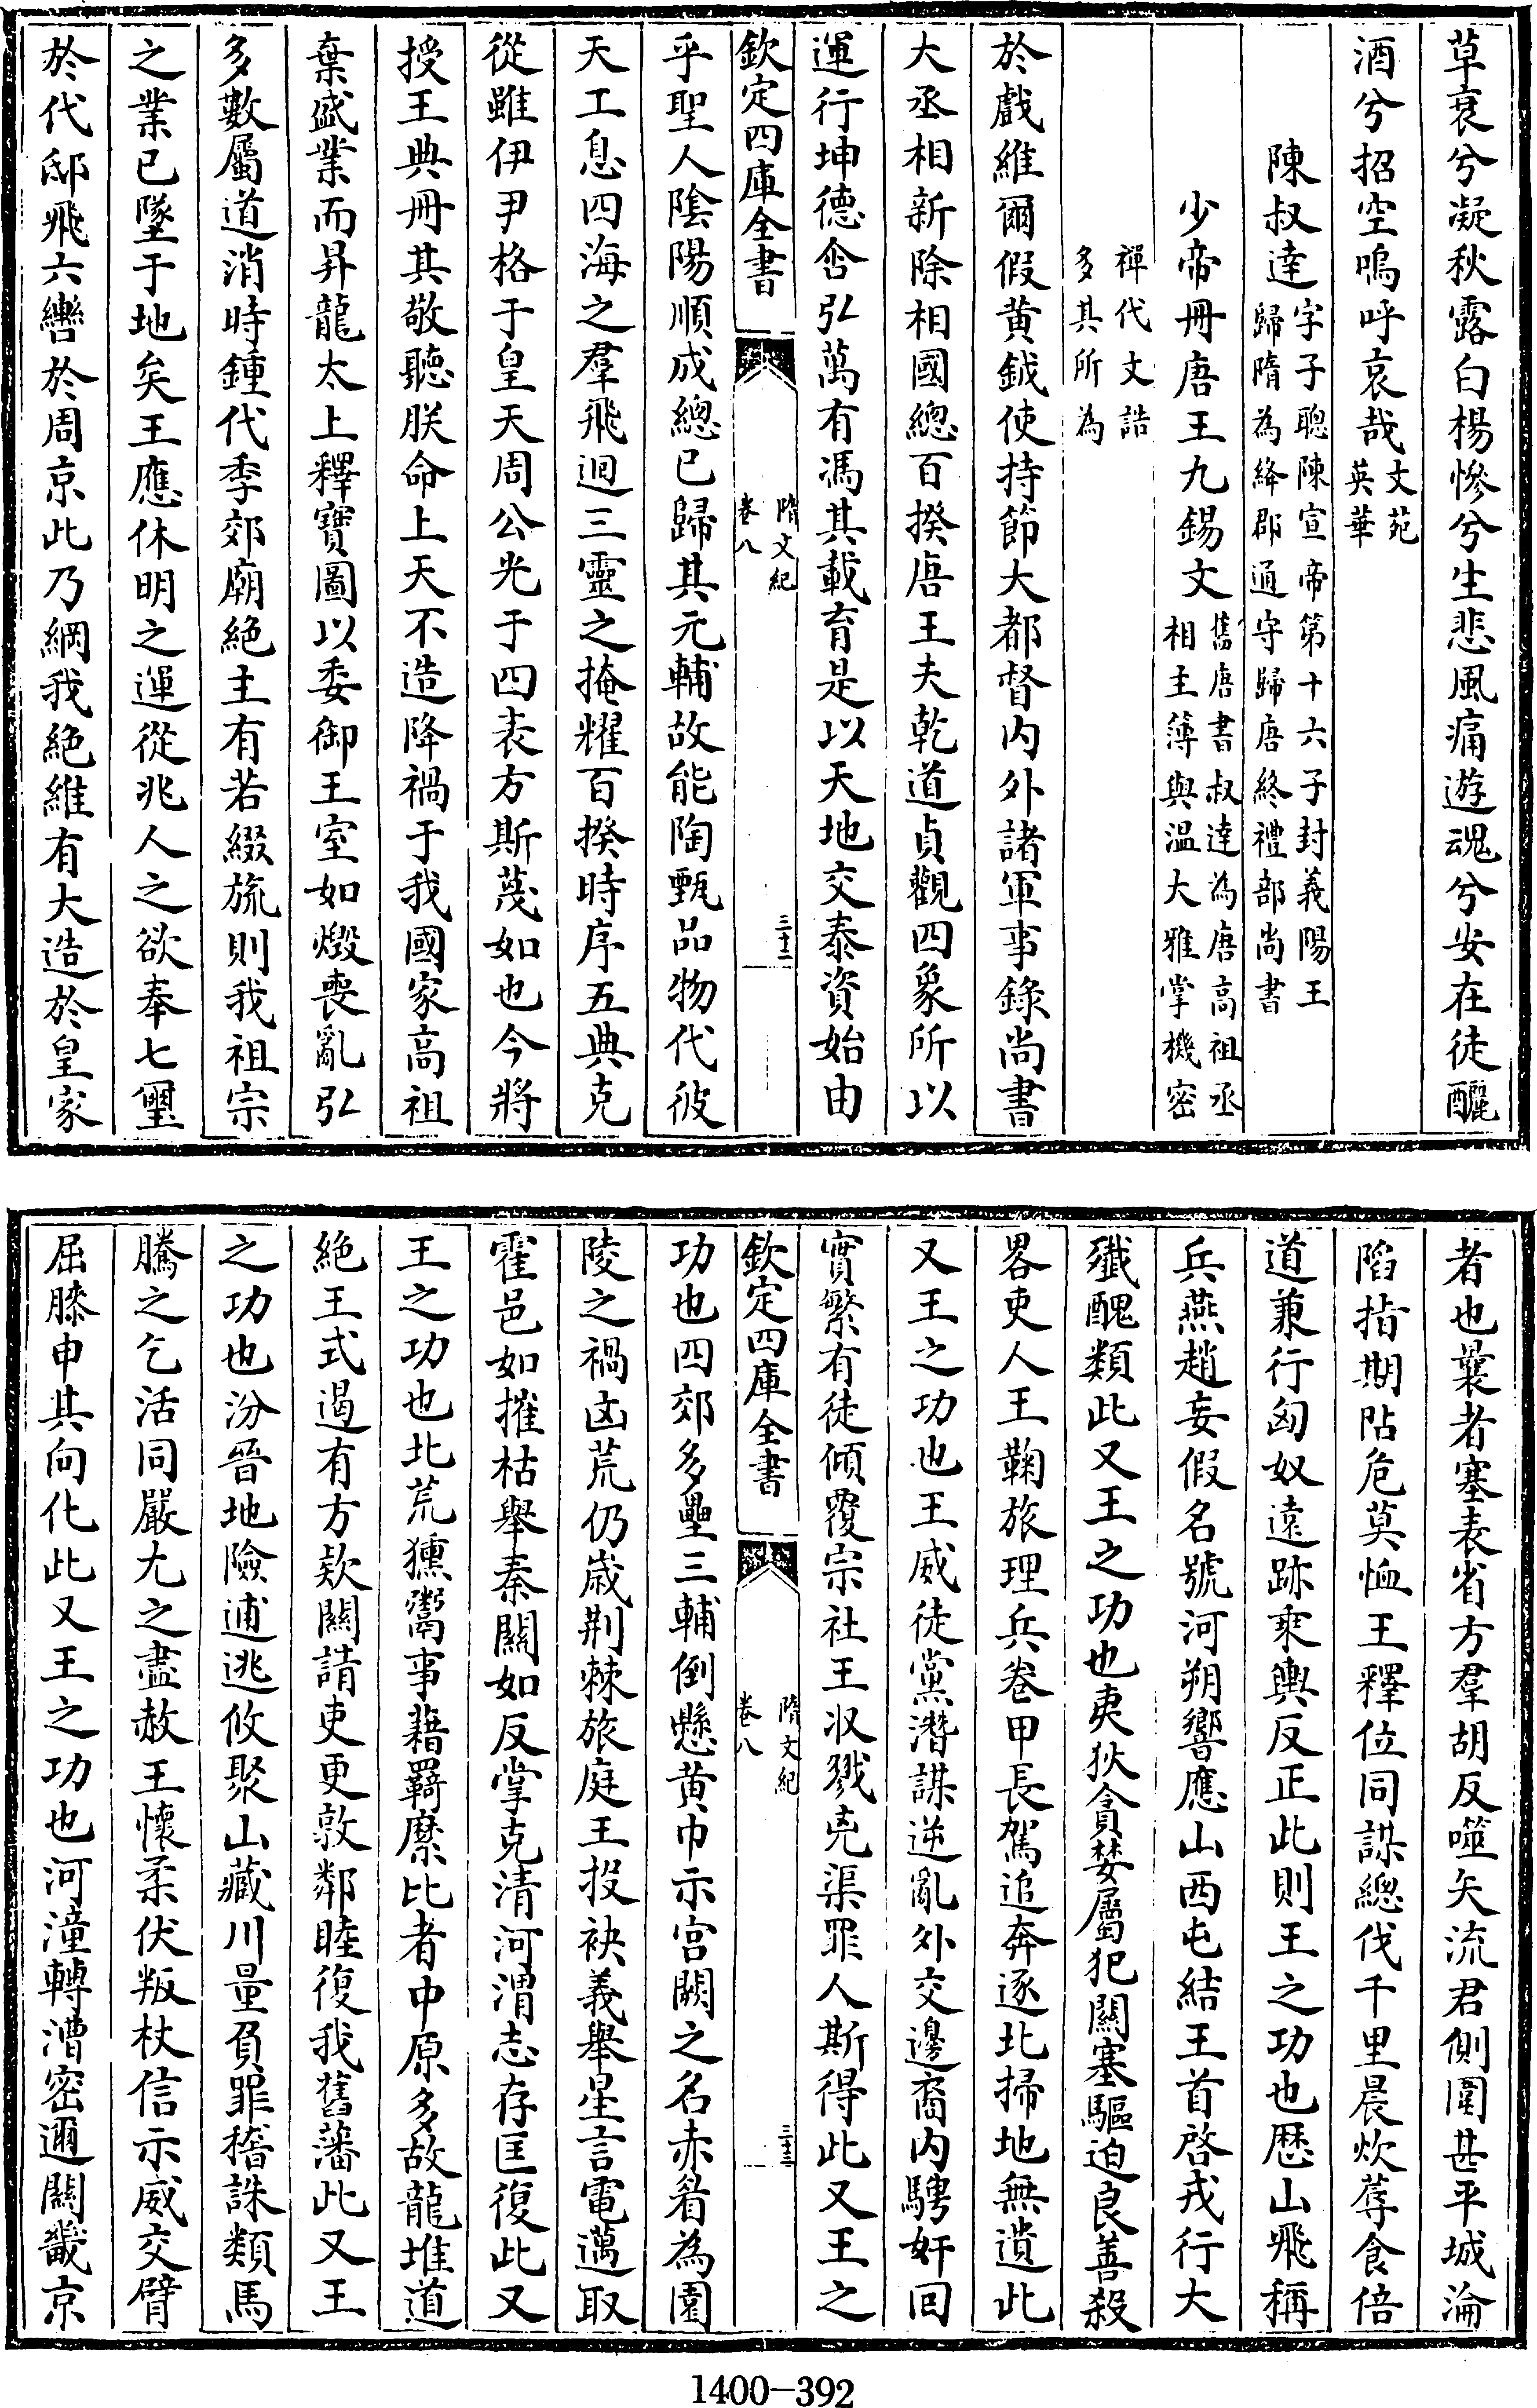 草衰兮凝秋露白楊慘兮生悲風痛遊魂兮安在徒釃
酒兮招空嗚呼哀哉文苑英華
陳叔達字子聰陳宣帝第十六子封義陽王歸隋為絳郡通守歸唐終禮部尚書
少帝冊唐王九錫文舊唐書叔達為唐高祖丞相主簿與温大雅掌機密
禪代文誥多其所為
於戲維爾假黄鉞使持節大都督内外諸軍事錄尚書
大丞相新除相國總百揆唐王夫乾道貞觀四象所以
運行坤德含弘萬有馮其載育是以天地交泰資始由
欽定四庫全書
隋文紀
卷八
三十二
乎聖人陰陽順成總已歸其元輔故能陶甄品物代彼
天工息四海之羣飛迴三靈之掩耀百揆時序五典克
從雖伊尹格于皇天周公光于四表方斯蔑如也今將
授王典冊其敬聽朕命上天不造降禍于我國家高祖
棄盛業而昇龍太上釋寶圖以委御王室如燬喪亂弘
多數屬道消時鍾代季郊廟絶主有若綴旒則我祖宗
之業已墜于地矣王應休明之運從兆人之欲奉七璽
於代邸飛六轡於周京此乃綱我絶維有大造於皇家
者也曩者塞表省方羣胡反噬矢流君側圍甚平城淪
陷指期阽危莫恤王釋位同謀總伐千里晨炊蓐食倍
道兼行匈奴遠跡乘輿反正此則王之功也歴山飛稱
兵燕趙妄假名號河朔響應山西屯結王首啓戎行大
殲醜類此又王之功也夷狄貪婪屬犯關塞驅迫良善殺
畧吏人王鞠旅理兵卷甲長駕追奔逐北掃地無遺此
又王之功也王威徒黨潛謀逆亂外交邊裔内騁奸回
實繁有徒傾覆宗社王収戮克渠罪人斯得此又王之
欽定四庫全書
隋文紀
卷八
三十三
功也四郊多壘三輔倒懸黄巾示宫闕之名赤眉為園
陵之禍凶荒仍歲荆棘旅庭王投袂義舉星言電邁取
霍邑如摧枯舉秦關如反掌克清河渭志存匡復此又
王之功也北荒獯鬻事藉羇縻比者中原多故龍堆道
絶王式遏有方欵關請吏更敦鄰睦復我舊藩此又王
之功也汾晉地險逋逃攸聚山藏川量負罪稽誅類馬
騰之乞活同嚴尤之盡赦王懷柔伏叛杖信示威交臂
屈膝申其向化此又王之功也河潼轉漕密邇關畿京
1400-392